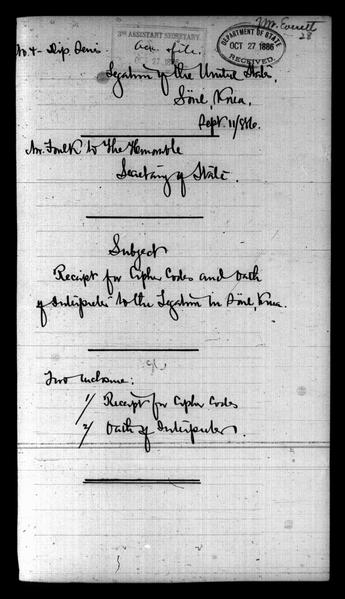 Mr. Everett
28
3RD ASSISTANT SECRETARY
OCT 27 1886
DEPARTMENT OF STATE
OCT 27 1886
RECEIVED
No. 4 - Dip. Series.
Ack. & file.
Legation of the United States,
Söul, Korea,
Sept 11/886.
Mr. Foulk to the Honorable
Secretary of State.
Subject
Receipt for Cipher Codes and Oath
of Interpreter to the Legation in Söul, Korea.
Two Inclosures:
1/ Receipt for Cipher Codes
2/ Oath of Interpreter.